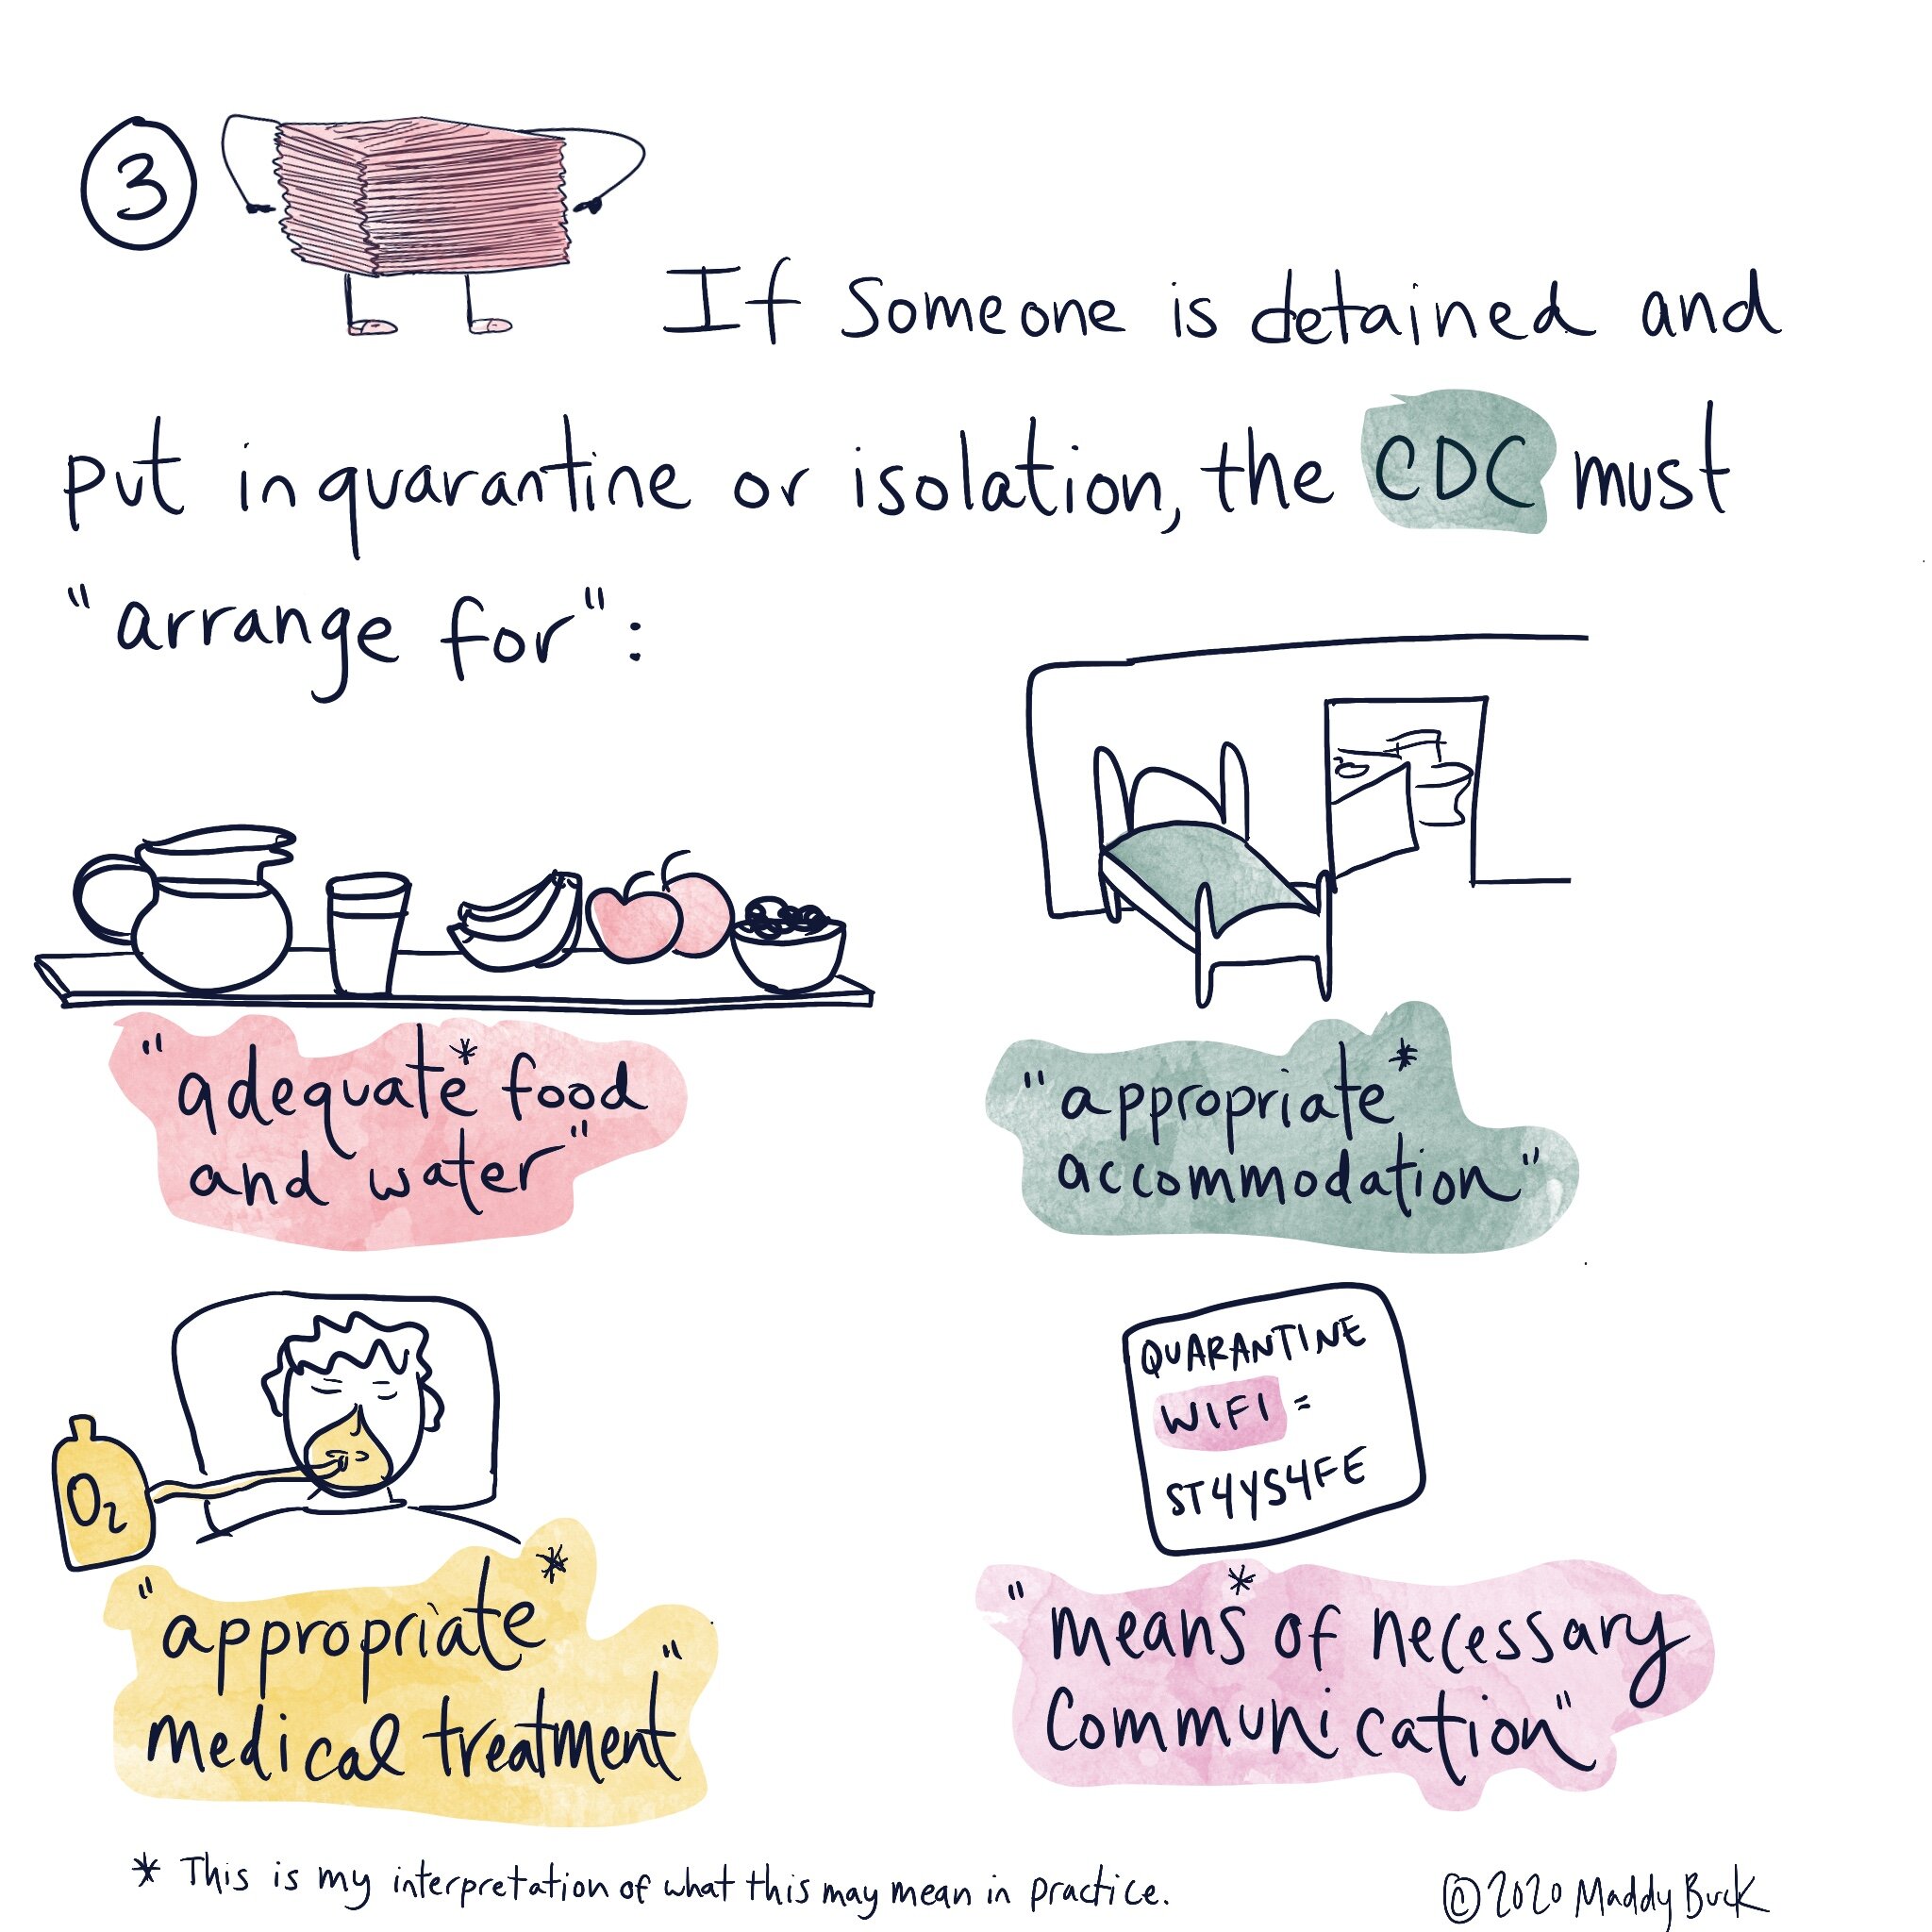 3
If someone is detained and
put in quarantine or isolation, the CDC must
"arrange for":
"adequate* food
and water"
"appropriate*
accommodation"
O2
QUARANTINE
WIFI =
ST4YS4FE
"appropriate*
medical treatment"
"means* of necessary
communication"
* This is my interpretation of what this may mean in practice.
©2020 Maddy Buck